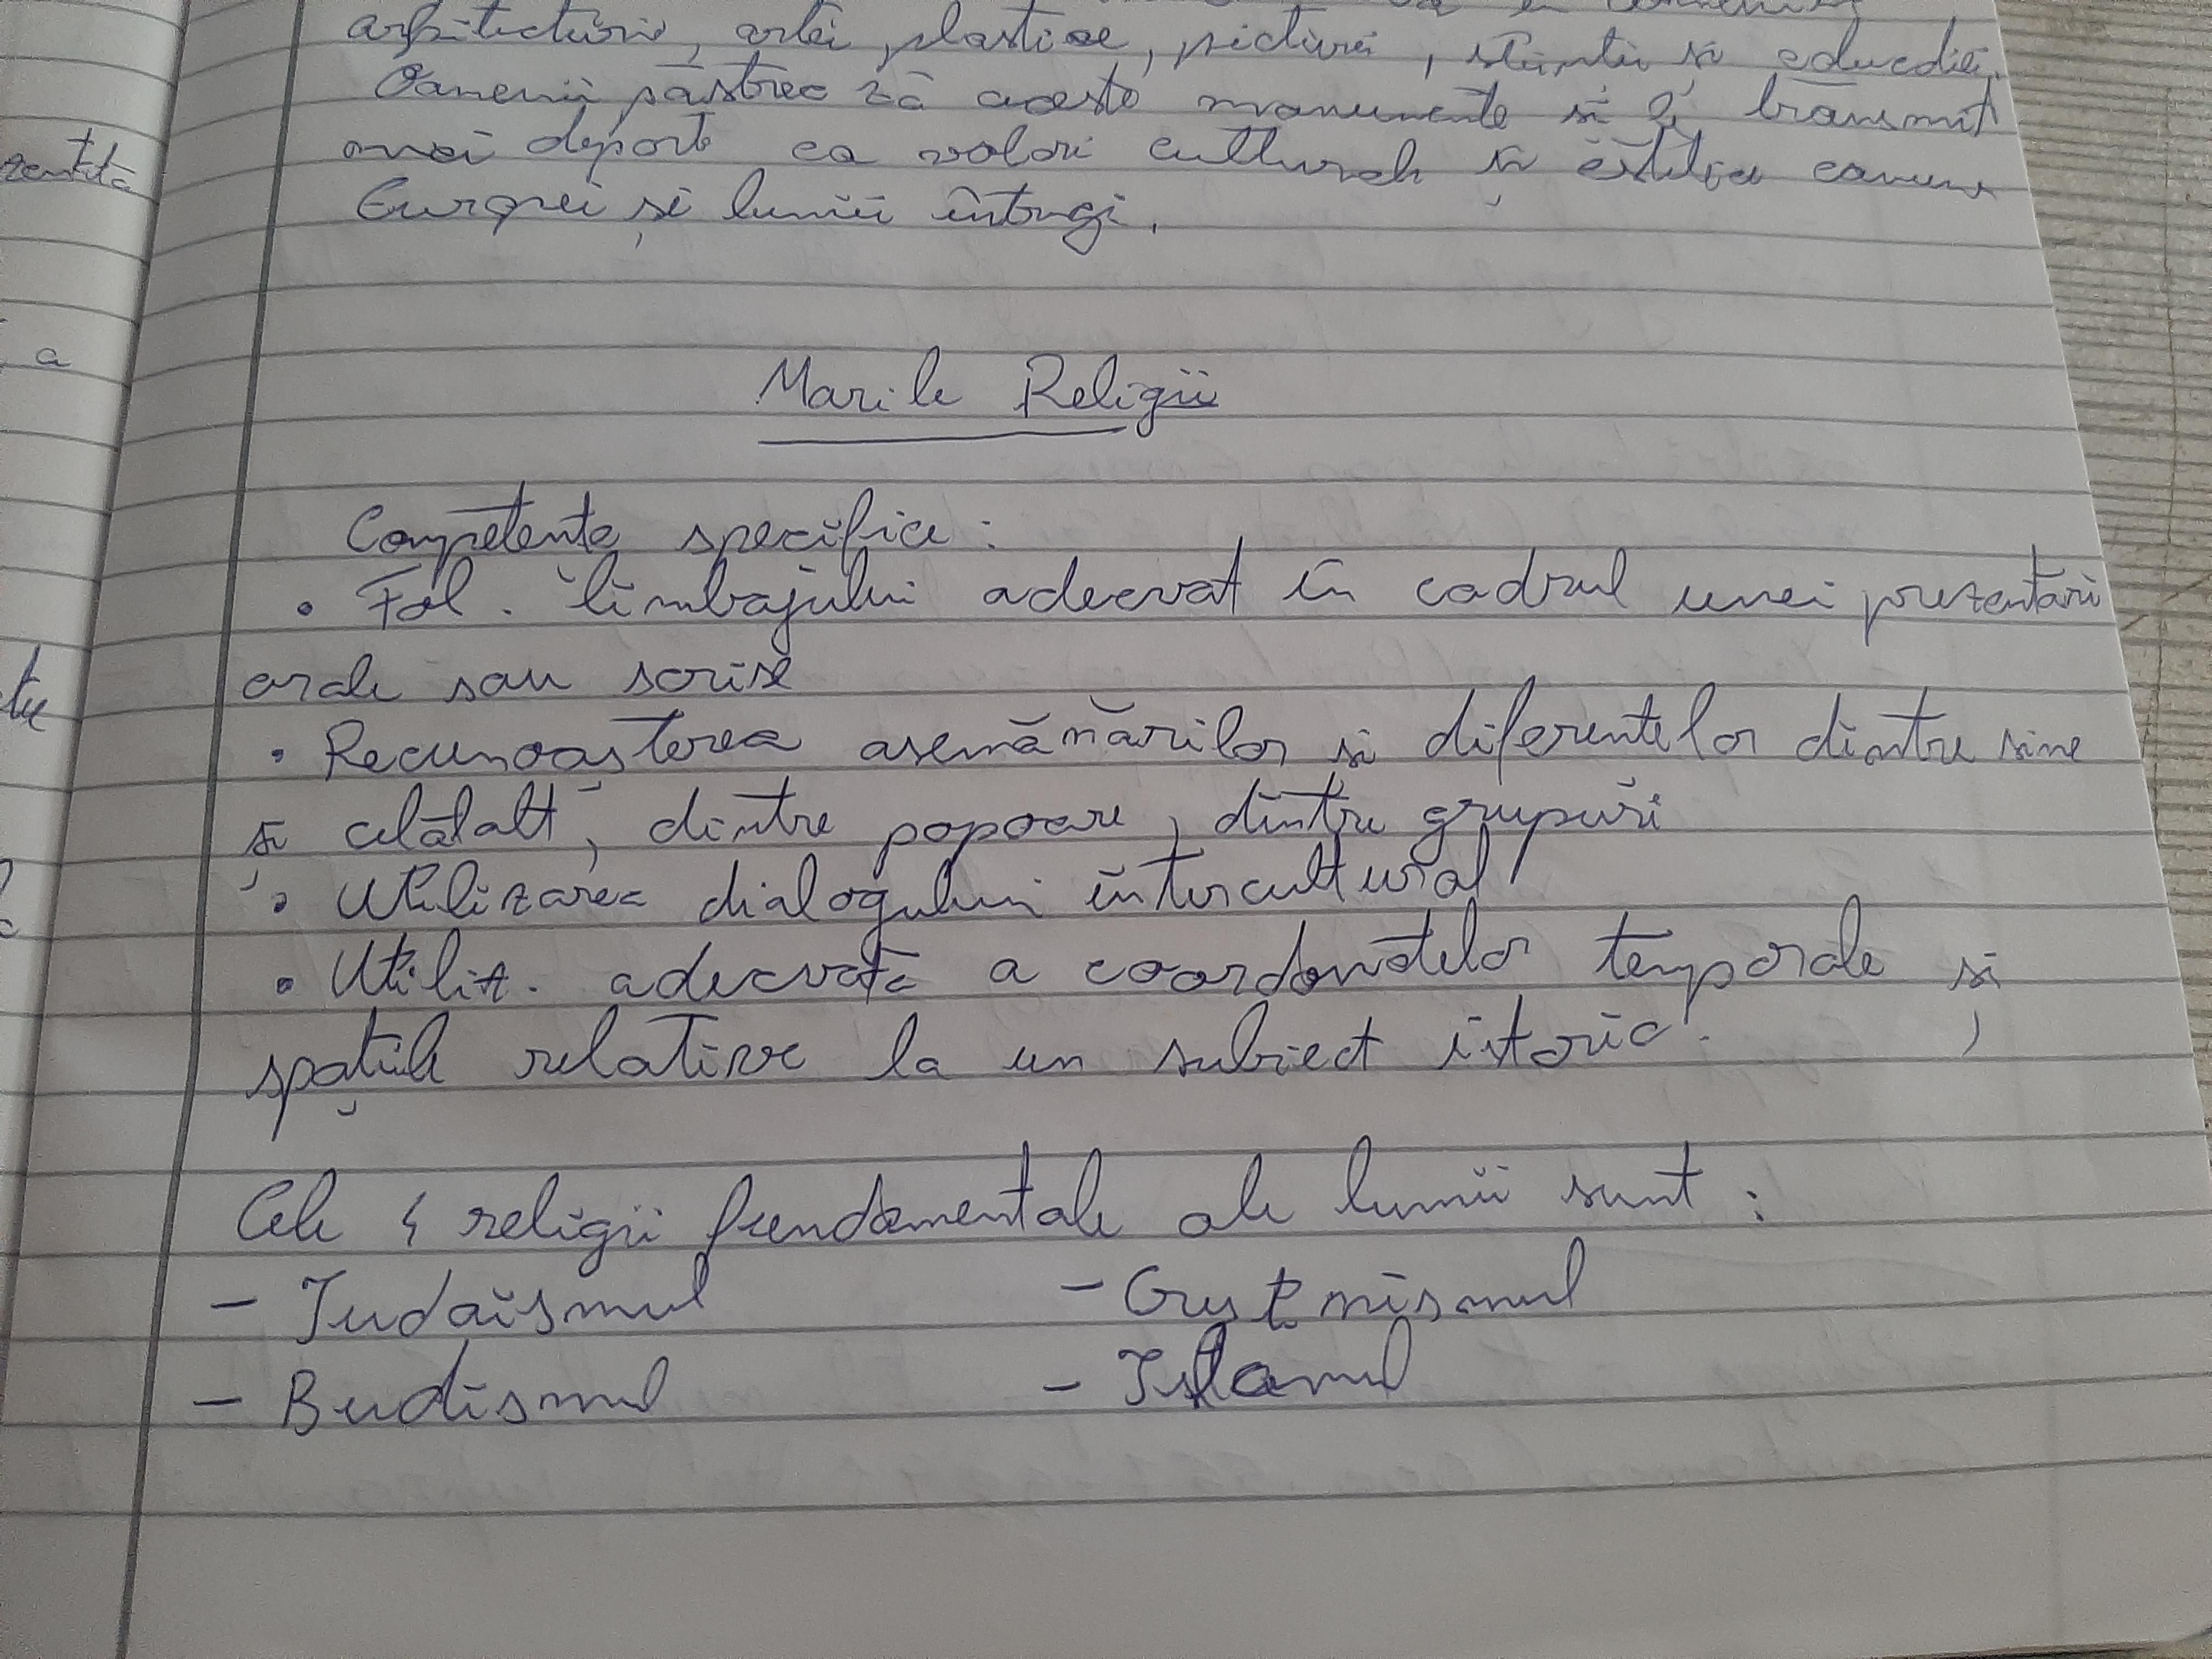 arhitecturii, artei plastice, picturii, științei și educației.
Oamenii păstrează aceste monumente și le transmit
mai departe ca valori culturale și estetice comune
Europei și lumii întregi.
zentată
a
Marile Religii
Competente specifice :
• Fol. limbajului adecvat în cadrul unei prezentări
orale sau scrise
• Recunoașterea asemănărilor si diferentelor dintre sine
și celălalt, dintre popoare, dintre grupuri
• Utilizarea dialogului intercultural
• Utiliz. adecvată a coordonatelor temporale și
spațiale relative la un subiect istoric.
Cele 4 religii fundamentale ale lumii sunt :
- Iudaismul - Creștinismul
- Budismul - Islamul